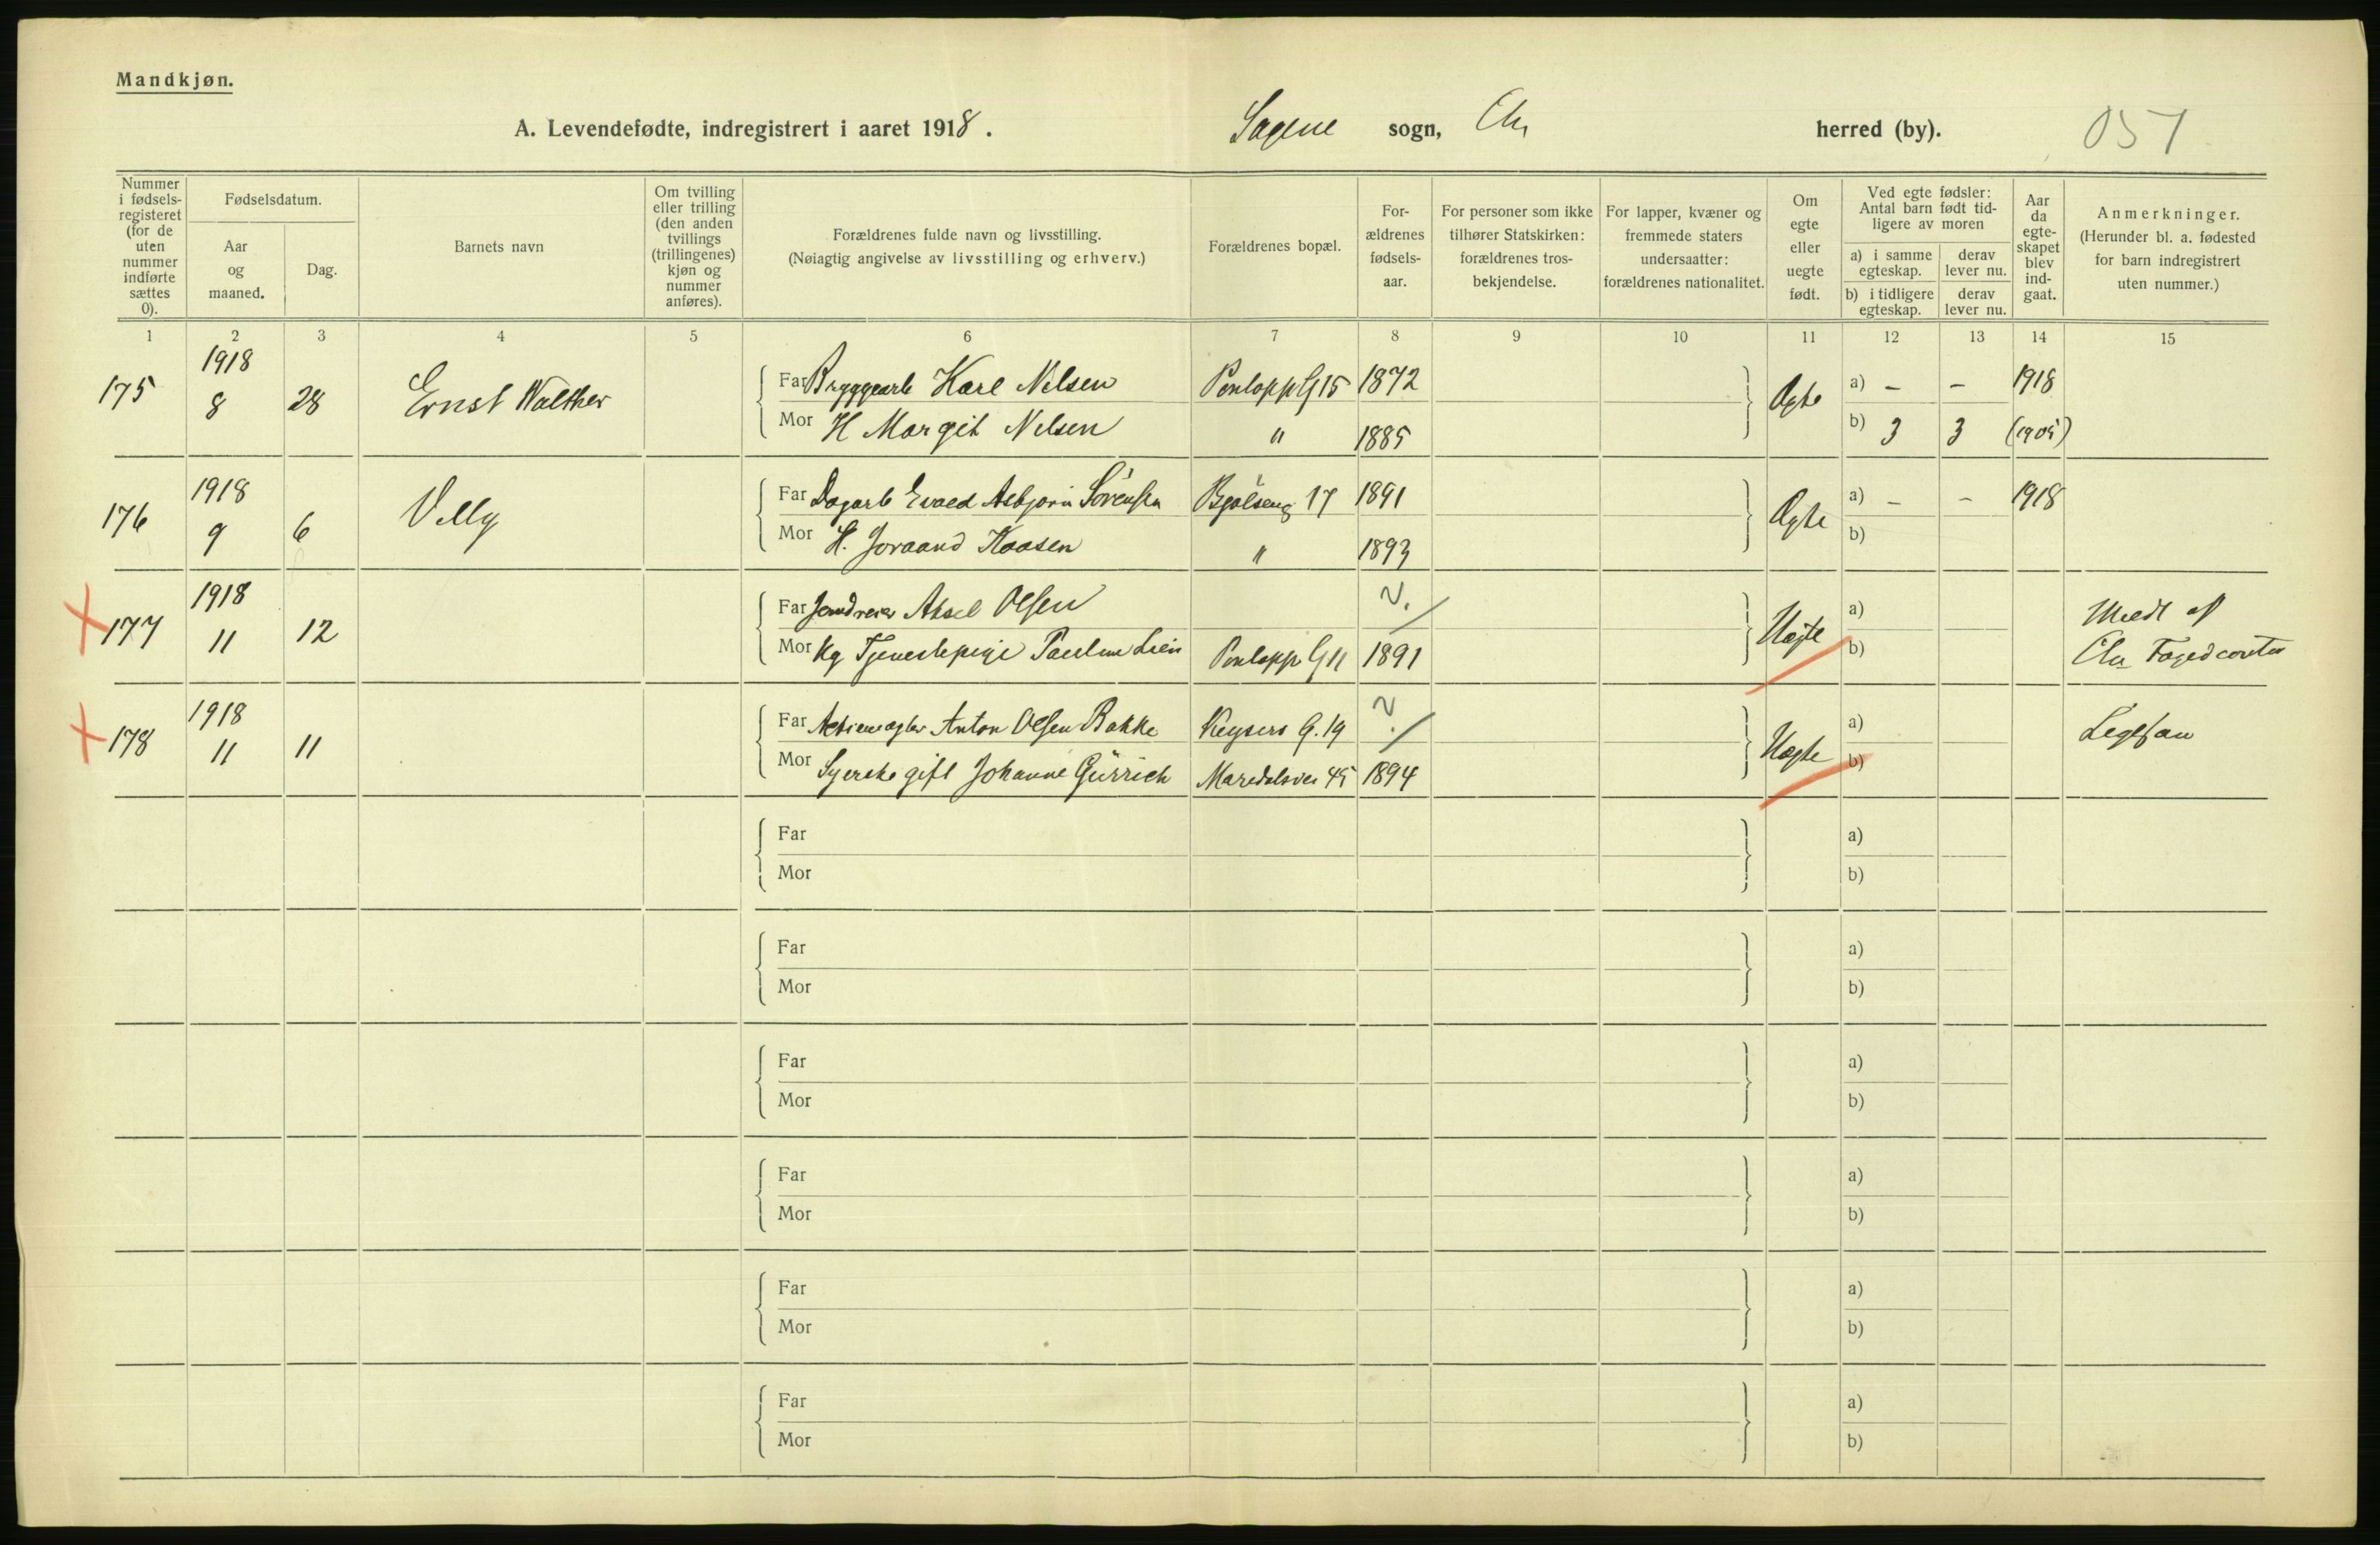 Mandkjøn.
A. Levendefødte, indregistrert i aaret 1918. Sagene sogn, Chr herred (by). 051
Nummer i fødsels-registeret (for de uten nummer indførte sættes 0).
Fødselsdatum.
Aar og maaned.
Dag.
Barnets navn
Om tvilling eller trilling (den anden tvillings (trillingenes) kjøn og nummer anføres).
Forældrenes fulde navn og livsstilling.
(Nøiagtig angivelse av livsstilling og erhverv.)
Forældrenes bopæl.
For-ældrenes fødsels-aar.
For personer som ikke tilhører Statskirken: forældrenes tros-bekjendelse.
For lapper, kvæner og fremmede staters undersaatter: forældrenes nationalitet.
Om egte eller uegte født.
Ved egte fødsler: Antal barn født tid-ligere av moren
a) i samme egteskap.
derav lever nu.
b) i tidligere egteskap.
derav lever nu.
Aar da egte-skapet blev ind-gaat.
Anmerkninger.
(Herunder bl. a. fødested for barn indregistrert uten nummer.)
1 2 3 4 5 6 7 8 9 10 11 12 13 14 15
175 1918 8 28 Ernst Walther
Far Bryggearb Karl Nilsen G 15 1872 Ægte a) – – 1918
Mor H Margit Nilsen " 1885 b) 3 3 (1905)
176 1918 9 6 Villy
Far Dagarb Evald Asbjørn Sörensen Bjölseng 17 1891 Ægte a) – – 1918
Mor H. Haasen " 1893 b)
177 1918 11 12
Far Aksel Olsen ? Uægte a) Medt af
Mor Ug Tjenestepige Pauline Lien G 11 1891 b) Chr Fogedcontor
178 1918 11 11
Far Anton Olsen Bakke Keysers G. 19 ? Uægte a)
Mor Syerske gift Johanne Gürrich Maridalsvei 45 1894 b)
Far a)
Mor b)
Far a)
Mor b)
Far a)
Mor b)
Far a)
Mor b)
Far a)
Mor b)
Far a)
Mor b)